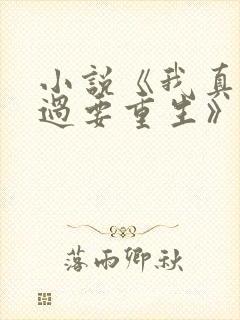 小說《我真
過要重生》
落雨卿秋